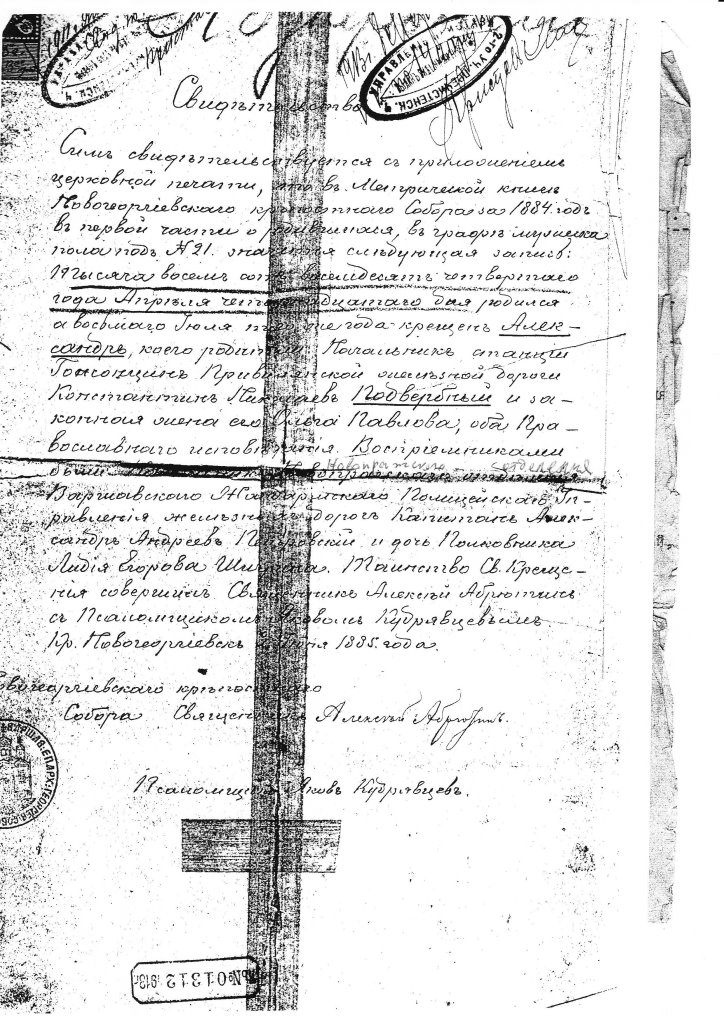 Свидѣтельство
Симъ свидѣтельствуется съ приложеніемъ
церковной печати, что въ Метрической книгѣ
Новогеоргіевскаго крѣпостнаго Собора за 1884 годъ
въ первой части о родившихся, въ графѣ мужеска
пола подъ № 21. значится слѣдующая запись:
Тысяча восемь сотъ восемдесятъ четвертаго
года Апрѣля четырнадцатаго дня родился
а восьмаго Іюля того же года крещенъ Алек-
сандръ, коего родители: Начальникъ станціи
Привислянской желѣзной дороги
Константинъ Николаевъ Подвербный и за-
конная жена его Ольга Павлова, оба Пра-
вославнаго исповѣданія. Воспріемниками
были отдѣленія
Варшавскаго Жандармскаго Полицейскаго Уп-
равленія желѣзныхъ дорогъ Капитанъ Алек-
сандръ Андреевъ Петровскій и дочь Полковника
Лидія Егорова. Таинство Св. Креще-
нія совершилъ Священникъ Алексѣй Абрютинъ
съ Псаломщикомъ Яковомъ Кудрявцевымъ
Кр. Новогеоргіевскъ 1885 года.
Новогеоргіевскаго крѣпостнаго
Собора Священникъ Алексѣй Абрютинъ.
Псаломщикъ Яковъ Кудрявцевъ.
№ 01312 1913